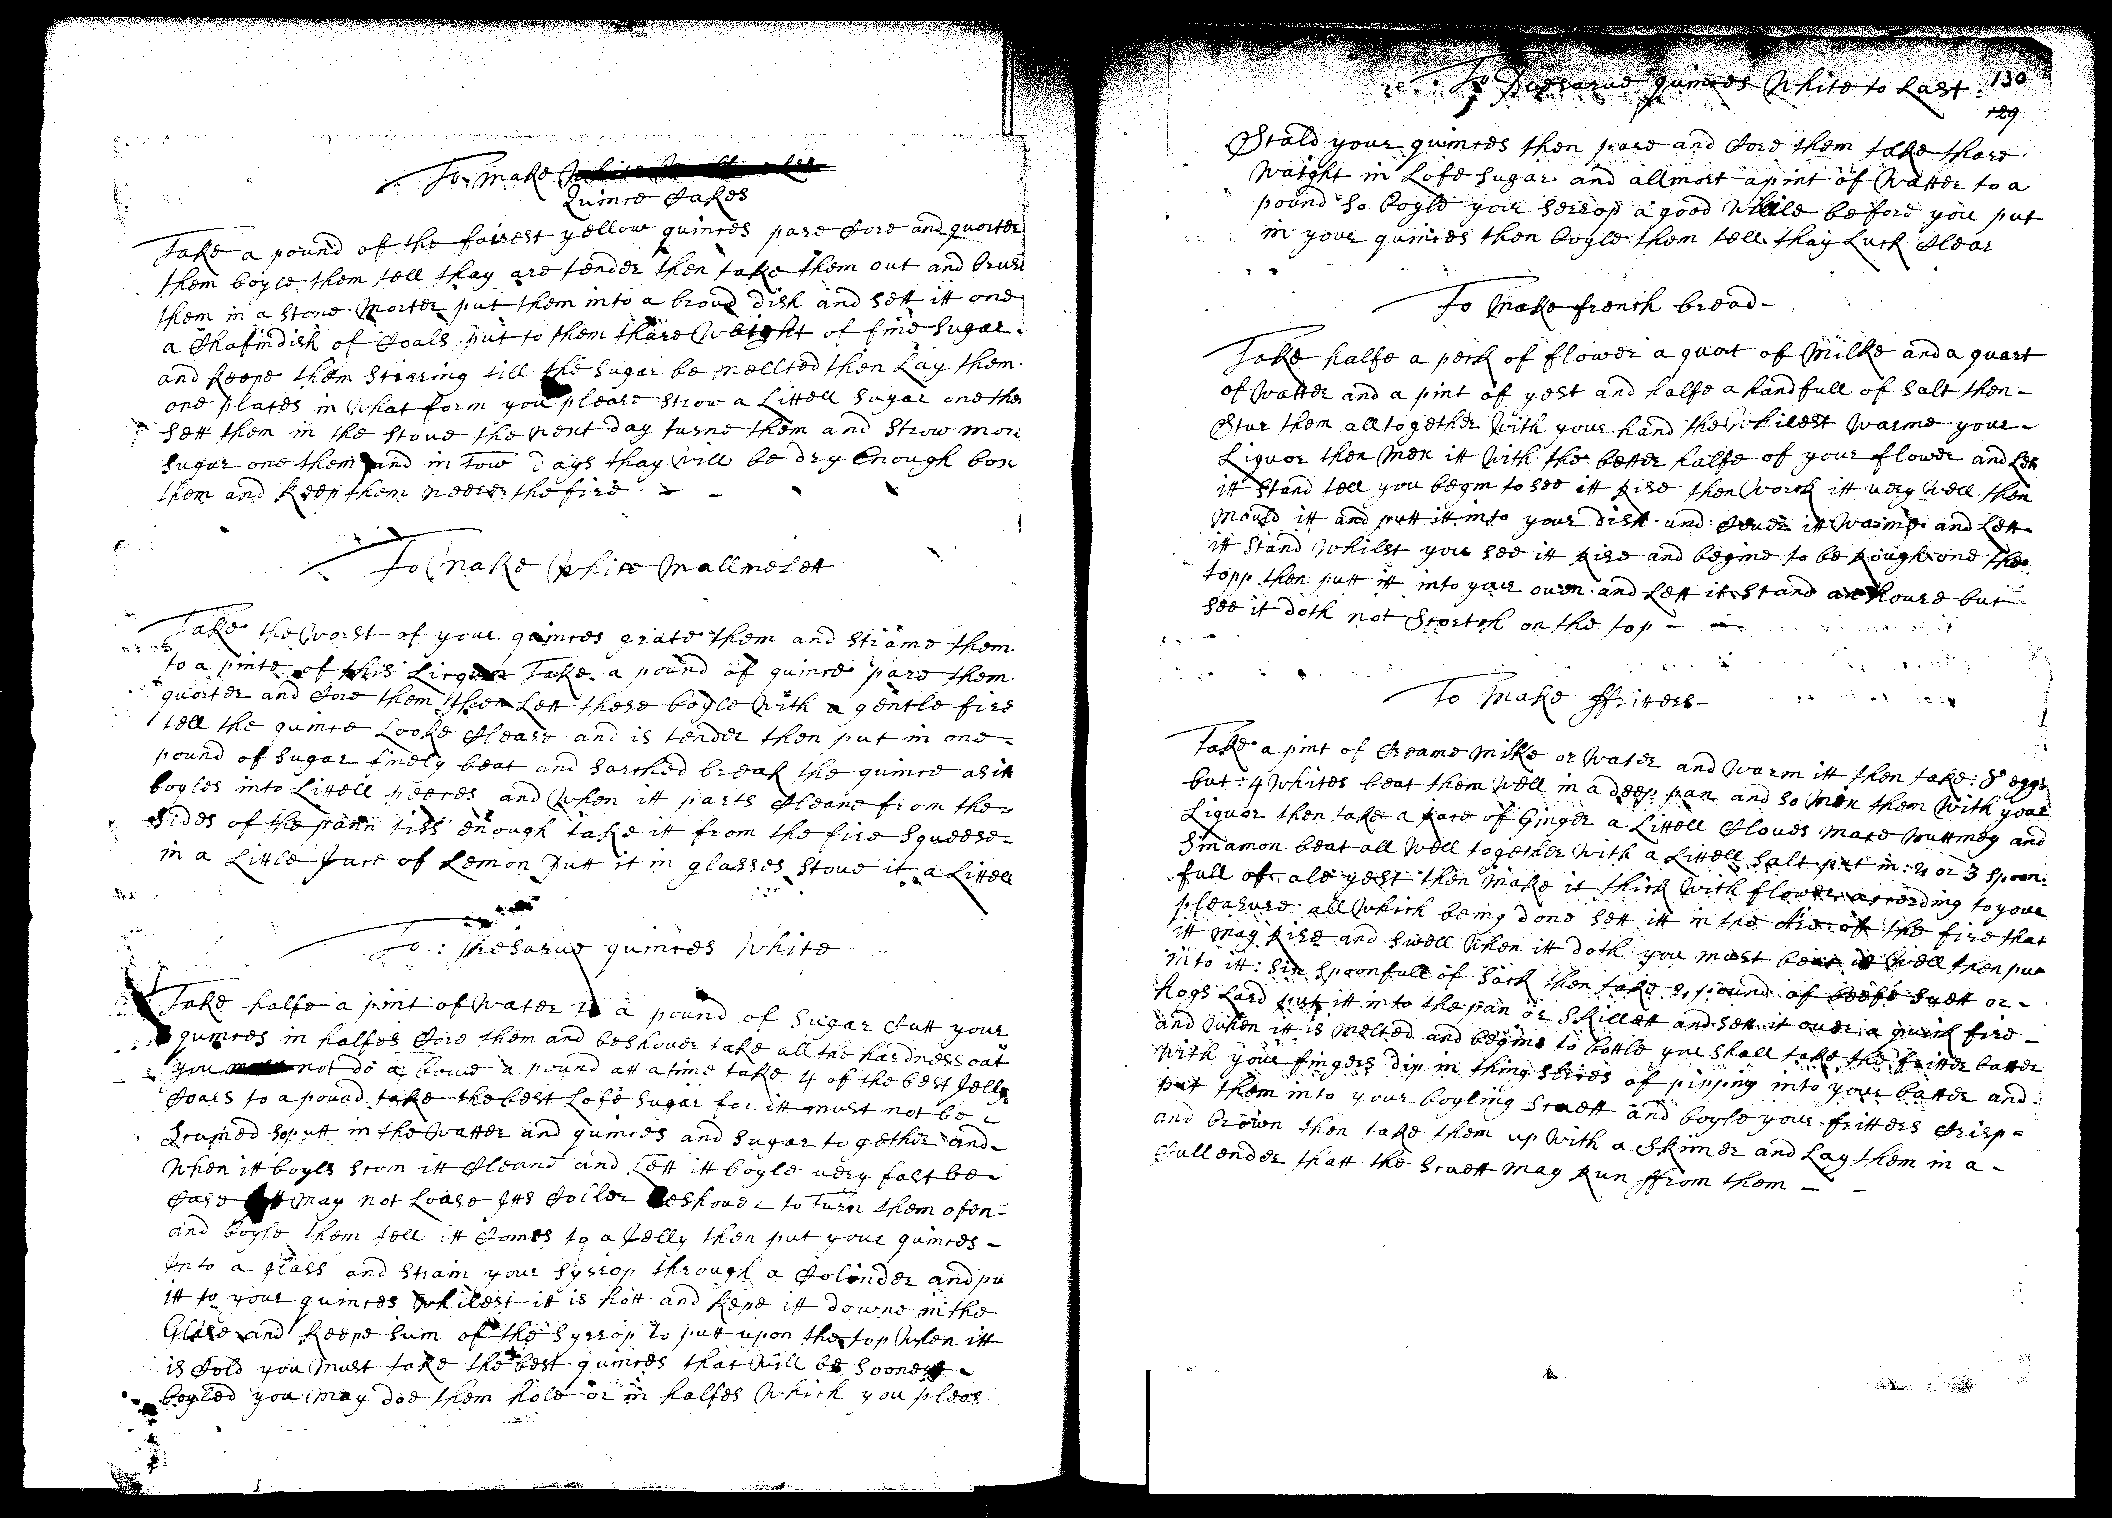 To make
Quince Cakes
Take a pound of the fairest yellow quinces pare Core and quorter
them boyle them tell thay are tender then take them out and bruse
them in a stone Morter put them into a broud dish and sett itt one
a Chafindish of Coals put to them thare Weight of fine Sugar
and keepe them stirring till the Sugar be mellted then Lay them
one plates in What form you please strow a Littell Sugar one them
Sett them in the stove the next day turne them and Strow more
Sugar one them and in tow Days thay Will be dry Enough box
them and keep them neere the fire
To Make White Mallmelett
Take the Worst of your quinces grate them and straine them
to a pinte of this Licquor Take a pound of quince pare them
quorter and Core them then Lett these boyle With a gentle fire
tell the quince Looke Cleare and is tender then put in one
pound of Sugar finely beat and Sarched break the quince as itt
boyles into Littell peeces and When itt parts Cleane from the
Sides of the pann tiss enough take itt from the fire Squeese
in a Little Juce of Lemon Putt it in glasses Stove it a Littell
To: Presarve quinces White
Take halfe a pint of Water to a pound of Sugar Cutt your
quinces in halfes Core them and beshouer take all the hardness out
you not do a boue a pound att a time take 4 of the best Jelly
Coars to a pound take the best Lofe Sugar for itt must not be
Scumed So putt in the Watter and quinces and Sugar to gether and
When itt boyls Scom itt Cleane and Lett itt boyle very fast be
Case itt May not Loase Itts Coller beshouer to Turn them ofen
and boyle them tell itt Comes to a Jelly then put your quinces
Into a glass and strain your Syrrop through a Colender and pu
itt to your quinces Whilest it is hott and kepe itt downe in the
Glase and keepe Sum of the Syrrop to putt upon the top When itt
is Cold you Must take the best quinces that Will be Soonest
boyled you may doe them hole or in halfes Which you pleas
To Preesarve quinces White to Last 130
129
Scald your quinces then pare and Core them take thare
Waight in Lofe Sugar and allmost a pint of Watter to a
pound So boyle your Serrop a good While before you put
in your quinces then boyle them tell thay Luck Clear
To Make french bread
Take halfe a peck of flower a quort of Milke and a quart
of Watter and a pint of yest and halfe a handfull of Salt then
Stur them alltogether With your hand the Whilest Warme your
Liquor then Mex itt With the better halfe of your flower and Let
itt Stand tell you begin to see itt Rise then Worck itt very Well then
Mould itt and putt it into your dish and Cover it Warme and Lett
itt Stand Whilst you see itt Rise and begine to be Rough one the
topp then putt itt into your oven and Lett it Stand an houre but
See it doth not Scortch on the top
To Make ffritters
Take a pint of Creame Milke or Water and Warm itt then take: 8 eggs
but: 4 Whites beat them Well in a deep pan and so Mix them With your
Liquor then take a Race of Ginger a Littell Cloves Mace Nuttmeg and
Sinamon beat all Well together With a Littell Salt put in: 2 or 3 Spoon
full of ale yest then Make it thick With flower according to your
pleasure all Which being done Sett itt in the Aier off the fire that
itt may Rise and Swell When itt doth you must beat it Well then put
into itt: Six Spoonfull of Sack then take 2 pound of beefe Suett or
hogs Lard putt itt into the pan or Skillett and Sett it over a quick fire
and When itt is Melted and begins to bottle you Shall take the fritter batter
With your fingers dip in thing Slices of pipping into your batter and
Put them into your boyling Suett and boyle your fritters Crisp
and brown then take them up With a Skimer and Lay them in a
Cullender thatt the Suett may Run ffrom them